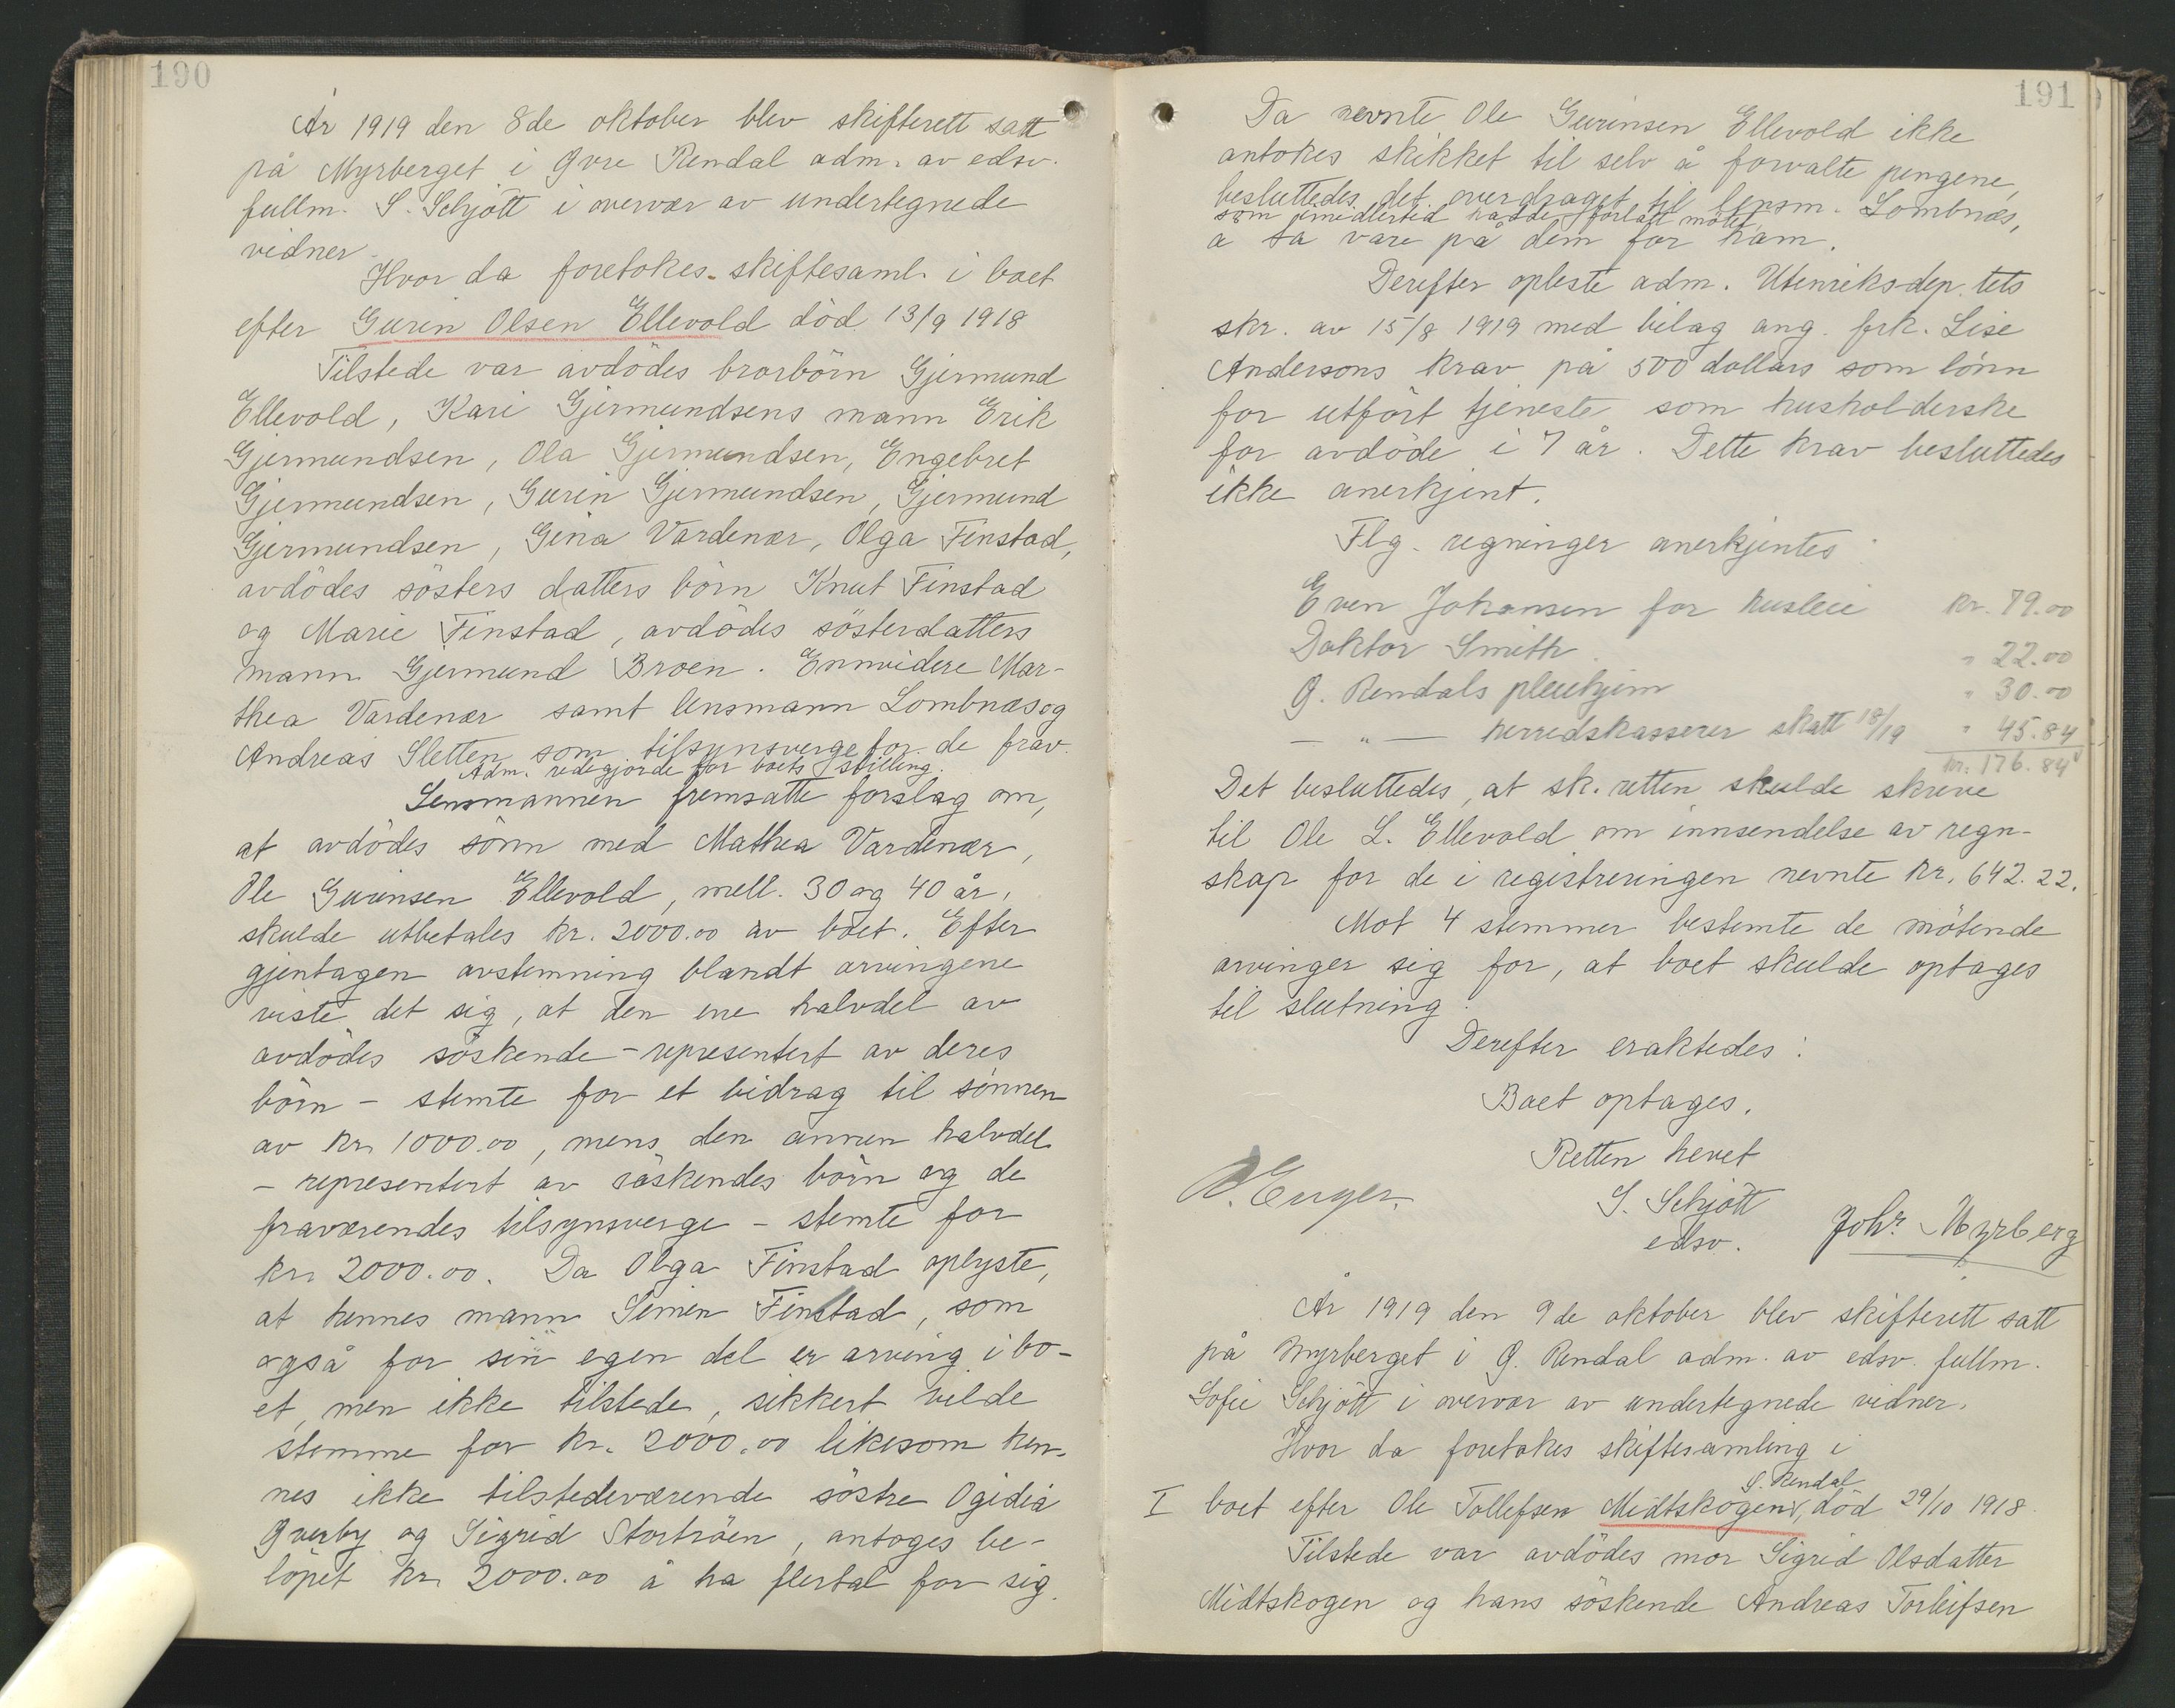 190
År 1919 den 8de oktober blev skifterett satt
på Myrberget i Øvre Rendal adm. av edsv.
fullm. S. Schjött i overvær av undertegnede
vidner.
Hvor da foretokes skiftesaml. i boet
efter Gurin Olsen Ellevold död 13/9 1918
Tilstede var avdödes brorbörn Gjermund
Ellevold, Kari Gjermundsens mann Erik
Gjermundsen, Ola Gjermundsen, Engebret
Gjermundsen, Gurin Gjermundsen, Gjermund
Gjermundsen, Gina Vardenær, Olga Finstad,
avdödes sösters datters börn Knut Finstad
og Marie Finstad, avdödes sösterdatters
mann Gjermund Broen. Ennvidere Mar-
thea Vardenær samt lensmann Lombnæs og
Andreas Sletten som tilsynsverge for de frav.
Adm. redegjorde for boets stilling.
Lensmannen fremsatte forslag om,
at avdödes sönn med Mathea Vardenær,
Ole Gurinsen Ellevold, mell. 30 og 40 år,
skulde utbetales kr. 2000.00 av boet. Efter
gjentagen avstemning blandt arvingene
viste det sig, at den ene halvdel av
avdödes söskende - representert av deres
börn - stemte for et bidrag til sönnen
av kr. 1000.00, mens den annen halvdel
- representert av söskendes börn og de
fraværendes tilsynsverge - stemte for
kr. 2000.00. Da Olga Finstad oplyste,
at hennes mann Simen Finstad, som
også for sin egen del er arving i bo-
et, men ikke tilstede, sikkert vilde
stemme for kr. 2000.00 likesom hen-
nes ikke tilstedeværende söstre Ogidia
Øverby og Sigrid Storträen, antoges be-
löpet kr. 2000.00 å ha flertal for sig.
191
Da nevnte Ole Gurinsen Ellevold ikke
antokes skikket til selv å forvalte pengene,
besluttedes det overdraget til lensm. Lombnæs,
som imidlertid hadde forlatt mötet,
å ta vare på dem for ham.
Derefter opleste adm. Utenriksdep.tets
skr. av 15/8 1919 med bilag ang. frk. Lise
Andersons krav på 500 dollars som lönn
for utfört tjeneste som husholderske
for avdöde i 7 år. Dette krav besluttedes
ikke anerkjent.
Flg. regninger anerkjentes:
Even Johansen for husleie kr. 79.00
Doktor Smith " 22.00
Ø. Rendals pleiehjem " 30.00
— " — herredskasserer skatt 18/19 " 45.84
kr. 176.84
Det besluttedes, at sk.retten skulde skrive
til Ole L. Ellevold om innsendelse av regn-
skap for de i registreringen nevnte kr. 642.22.
Mot 4 stemmer bestemte de mötende
arvinger sig for, at boet skulde optages
til slutning.
Derefter eraktedes:
Boet optages.
Retten hevet
S. Schjött
edsv.
Enger.
Johs. Myrberg
År 1919 den 9de oktober blev skifterett satt
på Myrberget i Ø. Rendal adm. av edsv. fullm.
Sofie Schjött i overvær av undertegnede vidner.
Hvor da foretokes skiftesamling i
I boet efter Ole Tollefsen Midtskogen, S. Rendal, död 29/10 1918
Tilstede var avdödes mor Sigrid Olsdatter
Midtskogen og hans söskende Andreas Torleifsen